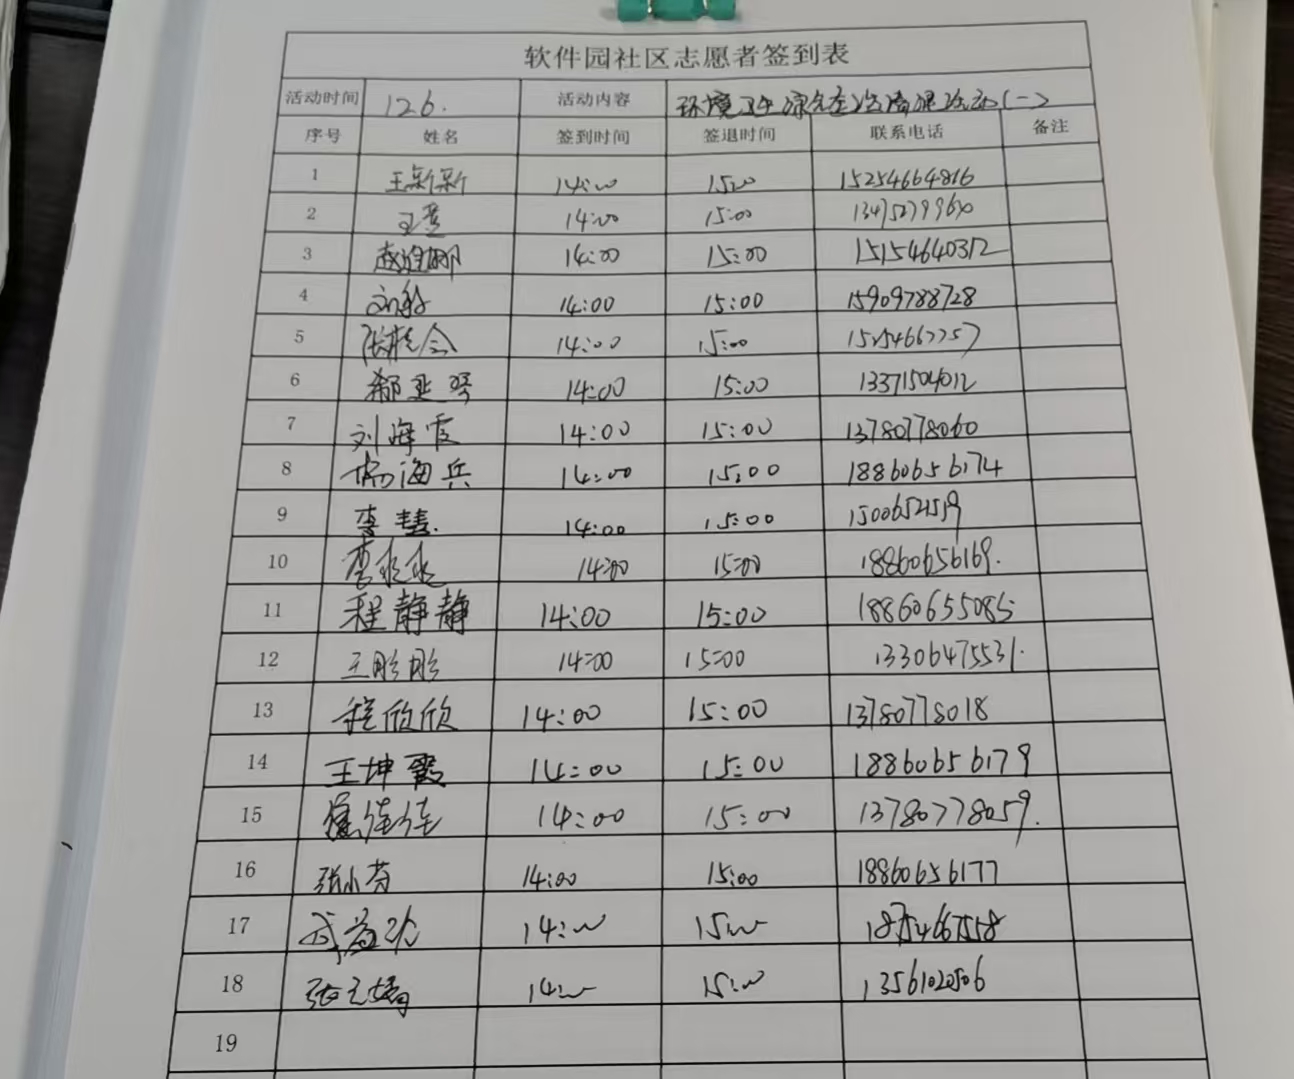 软件园社区志愿者签到表
活动时间 126. 活动内容 环境卫生
序号 姓名 签到时间 签退时间 联系电话 备注
1 王新新 14:00 15:00 15254664816
2 14:00 15:00
3 14:00 15:00 15154640312
4 14:00 15:00 15909788728
5 张桂会 14:00 15:00
6 14:00 15:00 13371504012
7 刘海霞 14:00 15:00 13780778060
8 杨海兵 14:00 15:00 18860656174
9 李慧. 14:00 15:00
10 14:00 15:00 18860656169.
11 程静静 14:00 15:00 18860655085
12 王彤彤 14:00 15:00 13306475531.
13 程欣欣 14:00 15:00 13780778018
14 王坤霞 14:00 15:00 18860656179
15 14:00 15:00 13780778059.
16 张小芬 14:00 15:00 18860656177
17 14:00 15:00
18 14:00 15:00 13561020506
19